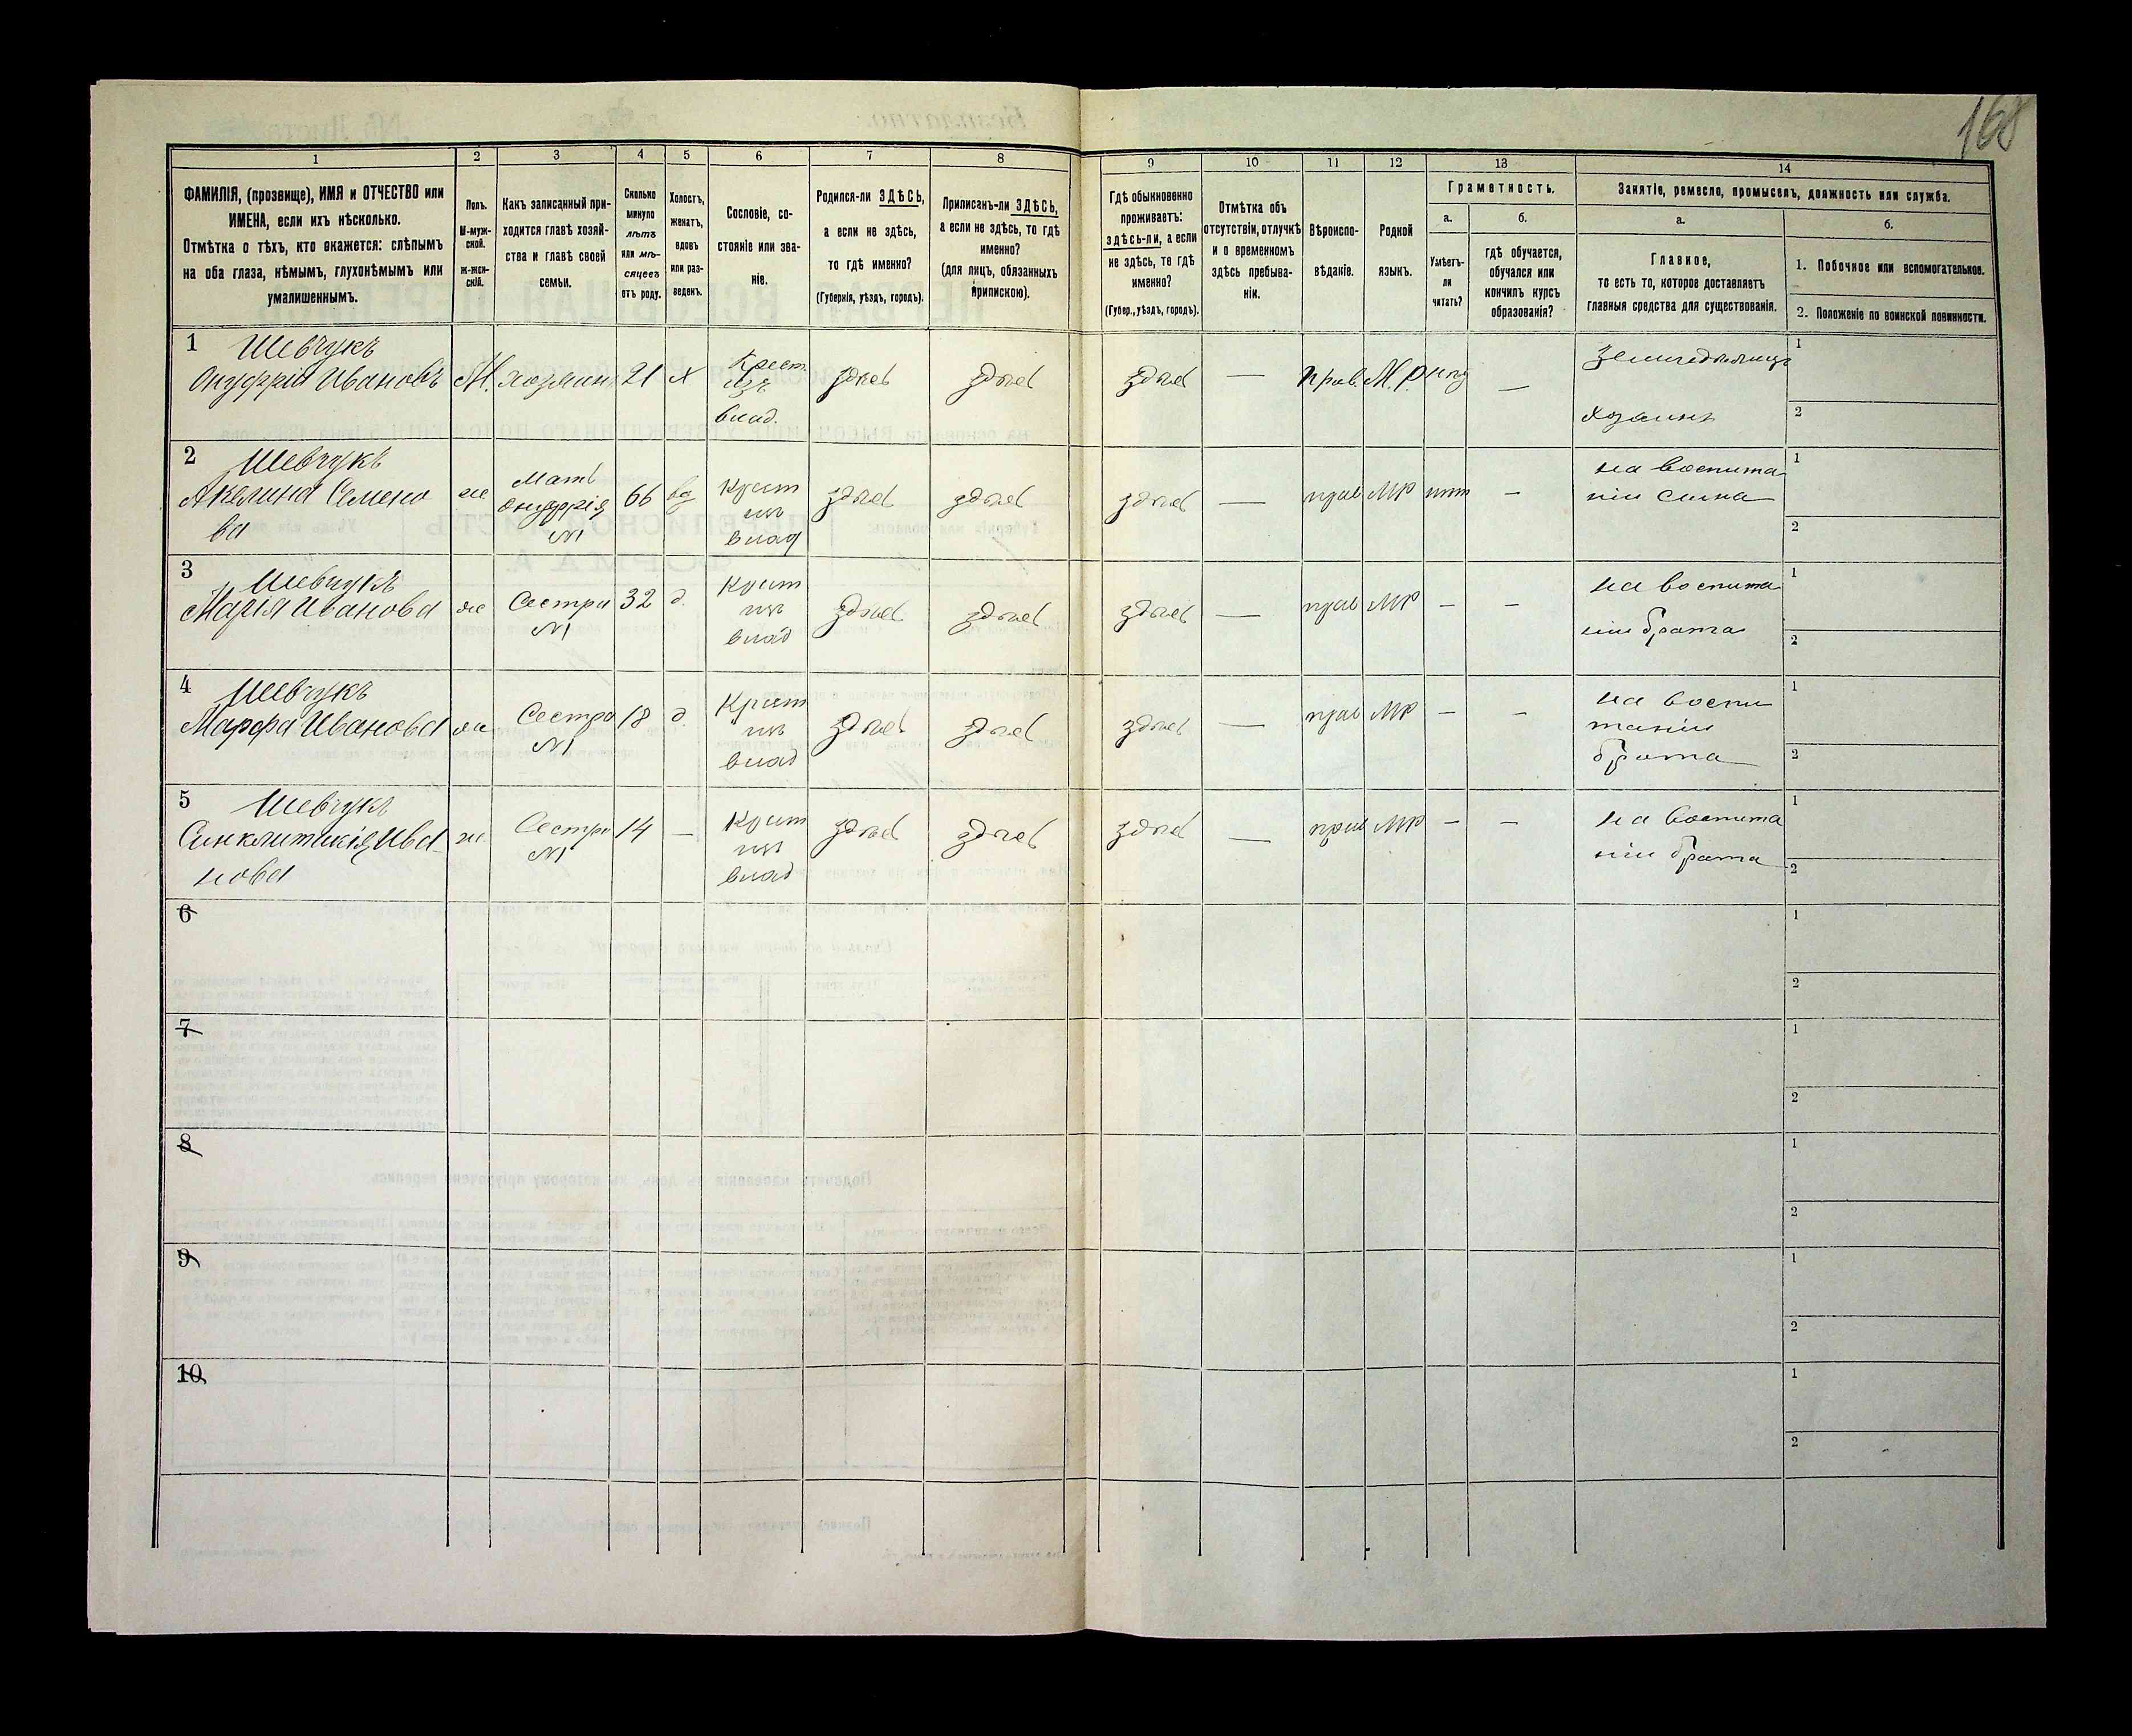 168
1
2
3
4
5
6
7
8
9
10
11
12
13
14
ФАМИЛІЯ, (прозвище), ИМЯ и ОТЧЕСТВО или
ИМЕНА, если ихъ нѣсколько.
Отмѣтка о тѣхъ, кто окажется: слѣпымъ
на оба глаза, нѣмымъ, глухонѣмымъ или
умалишеннымъ.
Полъ.
М-муж-
ской.
ж-жен-
скій.
Какъ записанный при-
ходится главѣ хозяй-
ства и главѣ своей
семьи.
Сколько
минуло
лѣтъ
или мѣ-
сяцевъ
отъ роду.
Холостъ,
женатъ,
вдовъ
или раз-
веденъ.
Сословіе, со-
стояніе или зва-
ніе.
Родился-ли ЗДѢСЬ,
а если не здѣсь,
то гдѣ именно?
(Губернія, уѣздъ, городъ).
Приписанъ-ли ЗДѢСЬ,
а если не здѣсь, то гдѣ
именно?
(для лицъ, обязанныхъ
припискою).
Гдѣ обыкновенно
проживаетъ:
здѣсь-ли, а если
не здѣсь, то гдѣ
именно?
(Губер., уѣздъ, городъ).
Отмѣтка объ
отсутствіи, отлучкѣ
и о временномъ
здѣсь пребыва-
ніи.
Вѣроиспо-
вѣданіе.
Родной
языкъ.
Грамотность.
а.
Умѣетъ-
ли
читать?
б.
гдѣ обучается,
обучался или
кончилъ курсъ
образованія?
Занятіе, ремесло, промыселъ, должность или служба.
а.
Главное,
то есть то, которое доставляетъ
главныя средства для существованія.
б.
1. Побочное или вспомогательное.
2. Положеніе по воинской повинности.
1 Шевчукъ
Онуфрій Ивановъ
М.
хозяин
21
х
Крест.
изъ
влад.
здѣсь
здѣсь
здѣсь
—
прав.
М.Р.
—
Земледѣлецъ
Хозяинъ
1
2
2 Шевчукъ
Акелина Семено
ва
ж
Мать
Онуфрія
N1
66
вд
Крест
изъ
влад
здѣсь
здѣсь
здѣсь
—
прав
МР
нѣт
—
на воспита
ніи сына
1
2
3 Шевчукъ
Марія Иванова
ж
Сестра
N1
32
д.
Крест
изъ
влад
здѣсь
здѣсь
здѣсь
—
прав
МР
—
—
на воспита
ніи брата
1
2
4 Шевчукъ
Марфа Иванова
ж
Сестра
N1
18
д.
Крест
изъ
влад
здѣсь
здѣсь
здѣсь
—
прав
МР
—
—
на воспи
таніи
брата
1
2
5 Шевчукъ
Синклитикія Ива-
нова
ж.
Сестра
N1
14
—
Крест
изъ
влад
здѣсь
здѣсь
здѣсь
—
прав
МР
—
—
на воспита
ніи брата
1
2
6
1
2
7
1
2
8
1
2
9
1
2
10
1
2